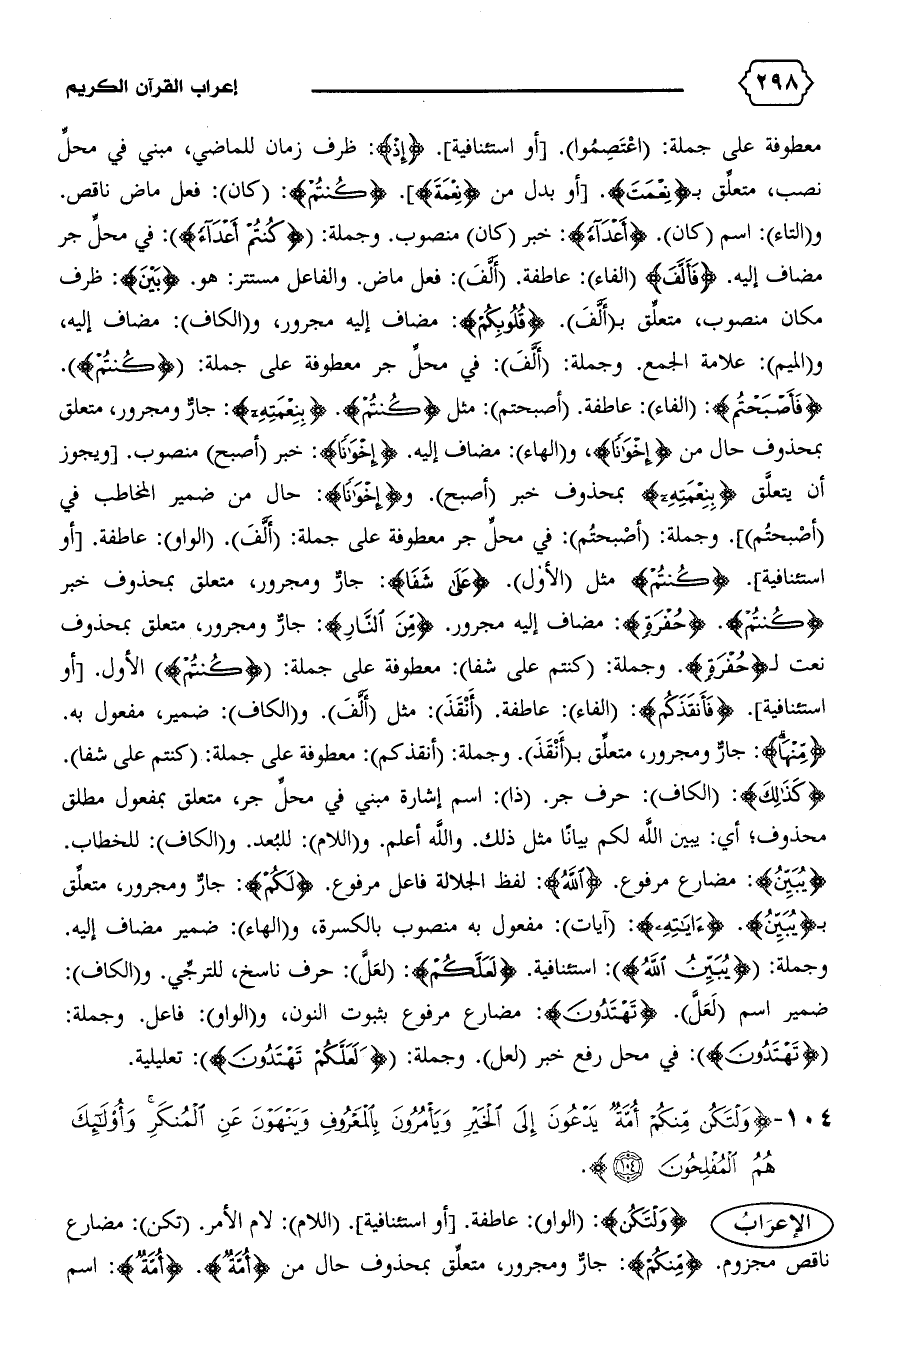 ٢٩٨ إعراب القرآن الكريم
معطوفة على جملة: (اعْتَصِمُوا). [أو استئنافية]. ﴿إِذْ﴾: ظرف زمان للماضي، مبني في محلِّ
نصب، متعلِّق بـ﴿نِعْمَتَ﴾. [أو بدل من ﴿نِعْمَةَ﴾]. ﴿كُنتُمْ﴾: (كان): فعل ماض ناقص.
و(التاء): اسم (كان). ﴿أَعْدَآءً﴾: خبر (كان) منصوب. وجملة: (﴿كُنتُمْ أَعْدَآءً﴾): في محلِّ جر
مضاف إليه. ﴿فَأَلَّفَ﴾ (الفاء): عاطفة. (أَلَّفَ): فعل ماض. والفاعل مستتر: هو. ﴿بَيْنَ﴾: ظرف
مكان منصوب، متعلِّق بـ(أَلَّفَ). ﴿قُلُوبِكُمْ﴾: مضاف إليه مجرور، و(الكاف): مضاف إليه،
و(الميم): علامة الجمع. وجملة: (أَلَّفَ): في محلِّ جر معطوفة على جملة: (﴿كُنتُمْ﴾).
﴿فَأَصْبَحْتُم﴾: (الفاء): عاطفة. (أصبحتم): مثل ﴿كُنتُمْ﴾. ﴿بِنِعْمَتِهِۦ﴾: جارٌّ ومجرور، متعلق
بمحذوف حال من ﴿إِخْوَٰنًا﴾، و(الهاء): مضاف إليه. ﴿إِخْوَٰنًا﴾: خبر (أصبح) منصوب. [ويجوز
أن يتعلَّق ﴿بِنِعْمَتِهِۦ﴾ بمحذوف خبر (أصبح). و﴿إِخْوَٰنًا﴾: حال من ضمير المخاطب في
(أصْبحتُم)]. وجملة: (أصْبحتُم): في محلِّ جر معطوفة على جملة: (أَلَّفَ). (الواو): عاطفة. [أو
استئنافية]. ﴿كُنتُمْ﴾ مثل (الأول). ﴿عَلَىٰ شَفَا﴾: جارٌّ ومجرور، متعلق بمحذوف خبر
﴿كُنتُمْ﴾. ﴿حُفْرَةٍ﴾: مضاف إليه مجرور. ﴿مِّنَ ٱلنَّارِ﴾: جارٌّ ومجرور، متعلق بمحذوف
نعت لـ﴿حُفْرَةٍ﴾. وجملة: (كنتم على شفا): معطوفة على جملة: (﴿كُنتُمْ﴾) الأول. [أو
استئنافية]. ﴿فَأَنقَذَكُم﴾: (الفاء): عاطفة. (أَنْقَذَ): مثل (أَلَّفَ). و(الكاف): ضمير، مفعول به.
﴿مِّنْهَا﴾: جارٌّ ومجرور، متعلِّق بـ(أَنْقَذَ). وجملة: (أنقذكم): معطوفة على جملة: (كنتم على شفا).
﴿كَذَٰلِكَ﴾: (الكاف): حرف جر. (ذا): اسم إشارة مبني في محلِّ جر، متعلق بمفعول مطلق
محذوف؛ أي: يبين اللَّه لكم بيانًا مثل ذلك. واللَّه أعلم. و(اللام): للبُعد. و(الكاف): للخطاب.
﴿يُبَيِّنُ﴾: مضارع مرفوع. ﴿ٱللَّهُ﴾: لفظ الجلالة فاعل مرفوع. ﴿لَكُمْ﴾: جارٌّ ومجرور، متعلِّق
بـ﴿يُبَيِّنُ﴾. ﴿ءَايَٰتِهِۦ﴾: (آيات): مفعول به منصوب بالكسرة، و(الهاء): ضمير مضاف إليه.
وجملة: (﴿يُبَيِّنُ ٱللَّهُ﴾): استئنافية. ﴿لَعَلَّكُمْ﴾: (لعلَّ): حرف ناسخ، للترجِّي. و(الكاف):
ضمير اسم (لَعَلَّ). ﴿تَهْتَدُونَ﴾: مضارع مرفوع بثبوت النون، و(الواو): فاعل. وجملة:
(﴿تَهْتَدُونَ﴾): في محل رفع خبر (لعل). وجملة: (﴿لَعَلَّكُمْ تَهْتَدُونَ﴾): تعليلية.
١٠٤-﴿وَلْتَكُن مِّنكُمْ أُمَّةٌ يَدْعُونَ إِلَى ٱلْخَيْرِ وَيَأْمُرُونَ بِٱلْمَعْرُوفِ وَيَنْهَوْنَ عَنِ ٱلْمُنكَرِ ۚ وَأُو۟لَٰٓئِكَ
هُمُ ٱلْمُفْلِحُونَ ١٠٤﴾.
الإعرَابُ ﴿وَلْتَكُن﴾: (الواو): عاطفة. [أو استئنافية]. (اللام): لام الأمر. (تكن): مضارع
ناقص مجزوم. ﴿مِّنكُمْ﴾: جارٌّ ومجرور، متعلِّق بمحذوف حال من ﴿أُمَّةٌ﴾. ﴿أُمَّةٌ﴾: اسم